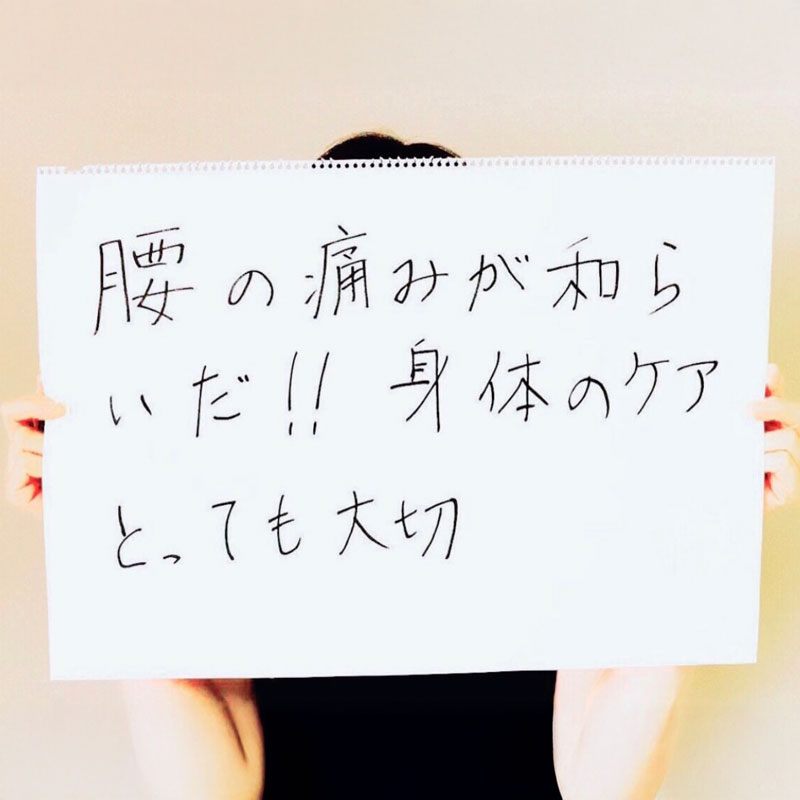 腰の痛みが和ら
いだ!! 身体のケア
とっても大切